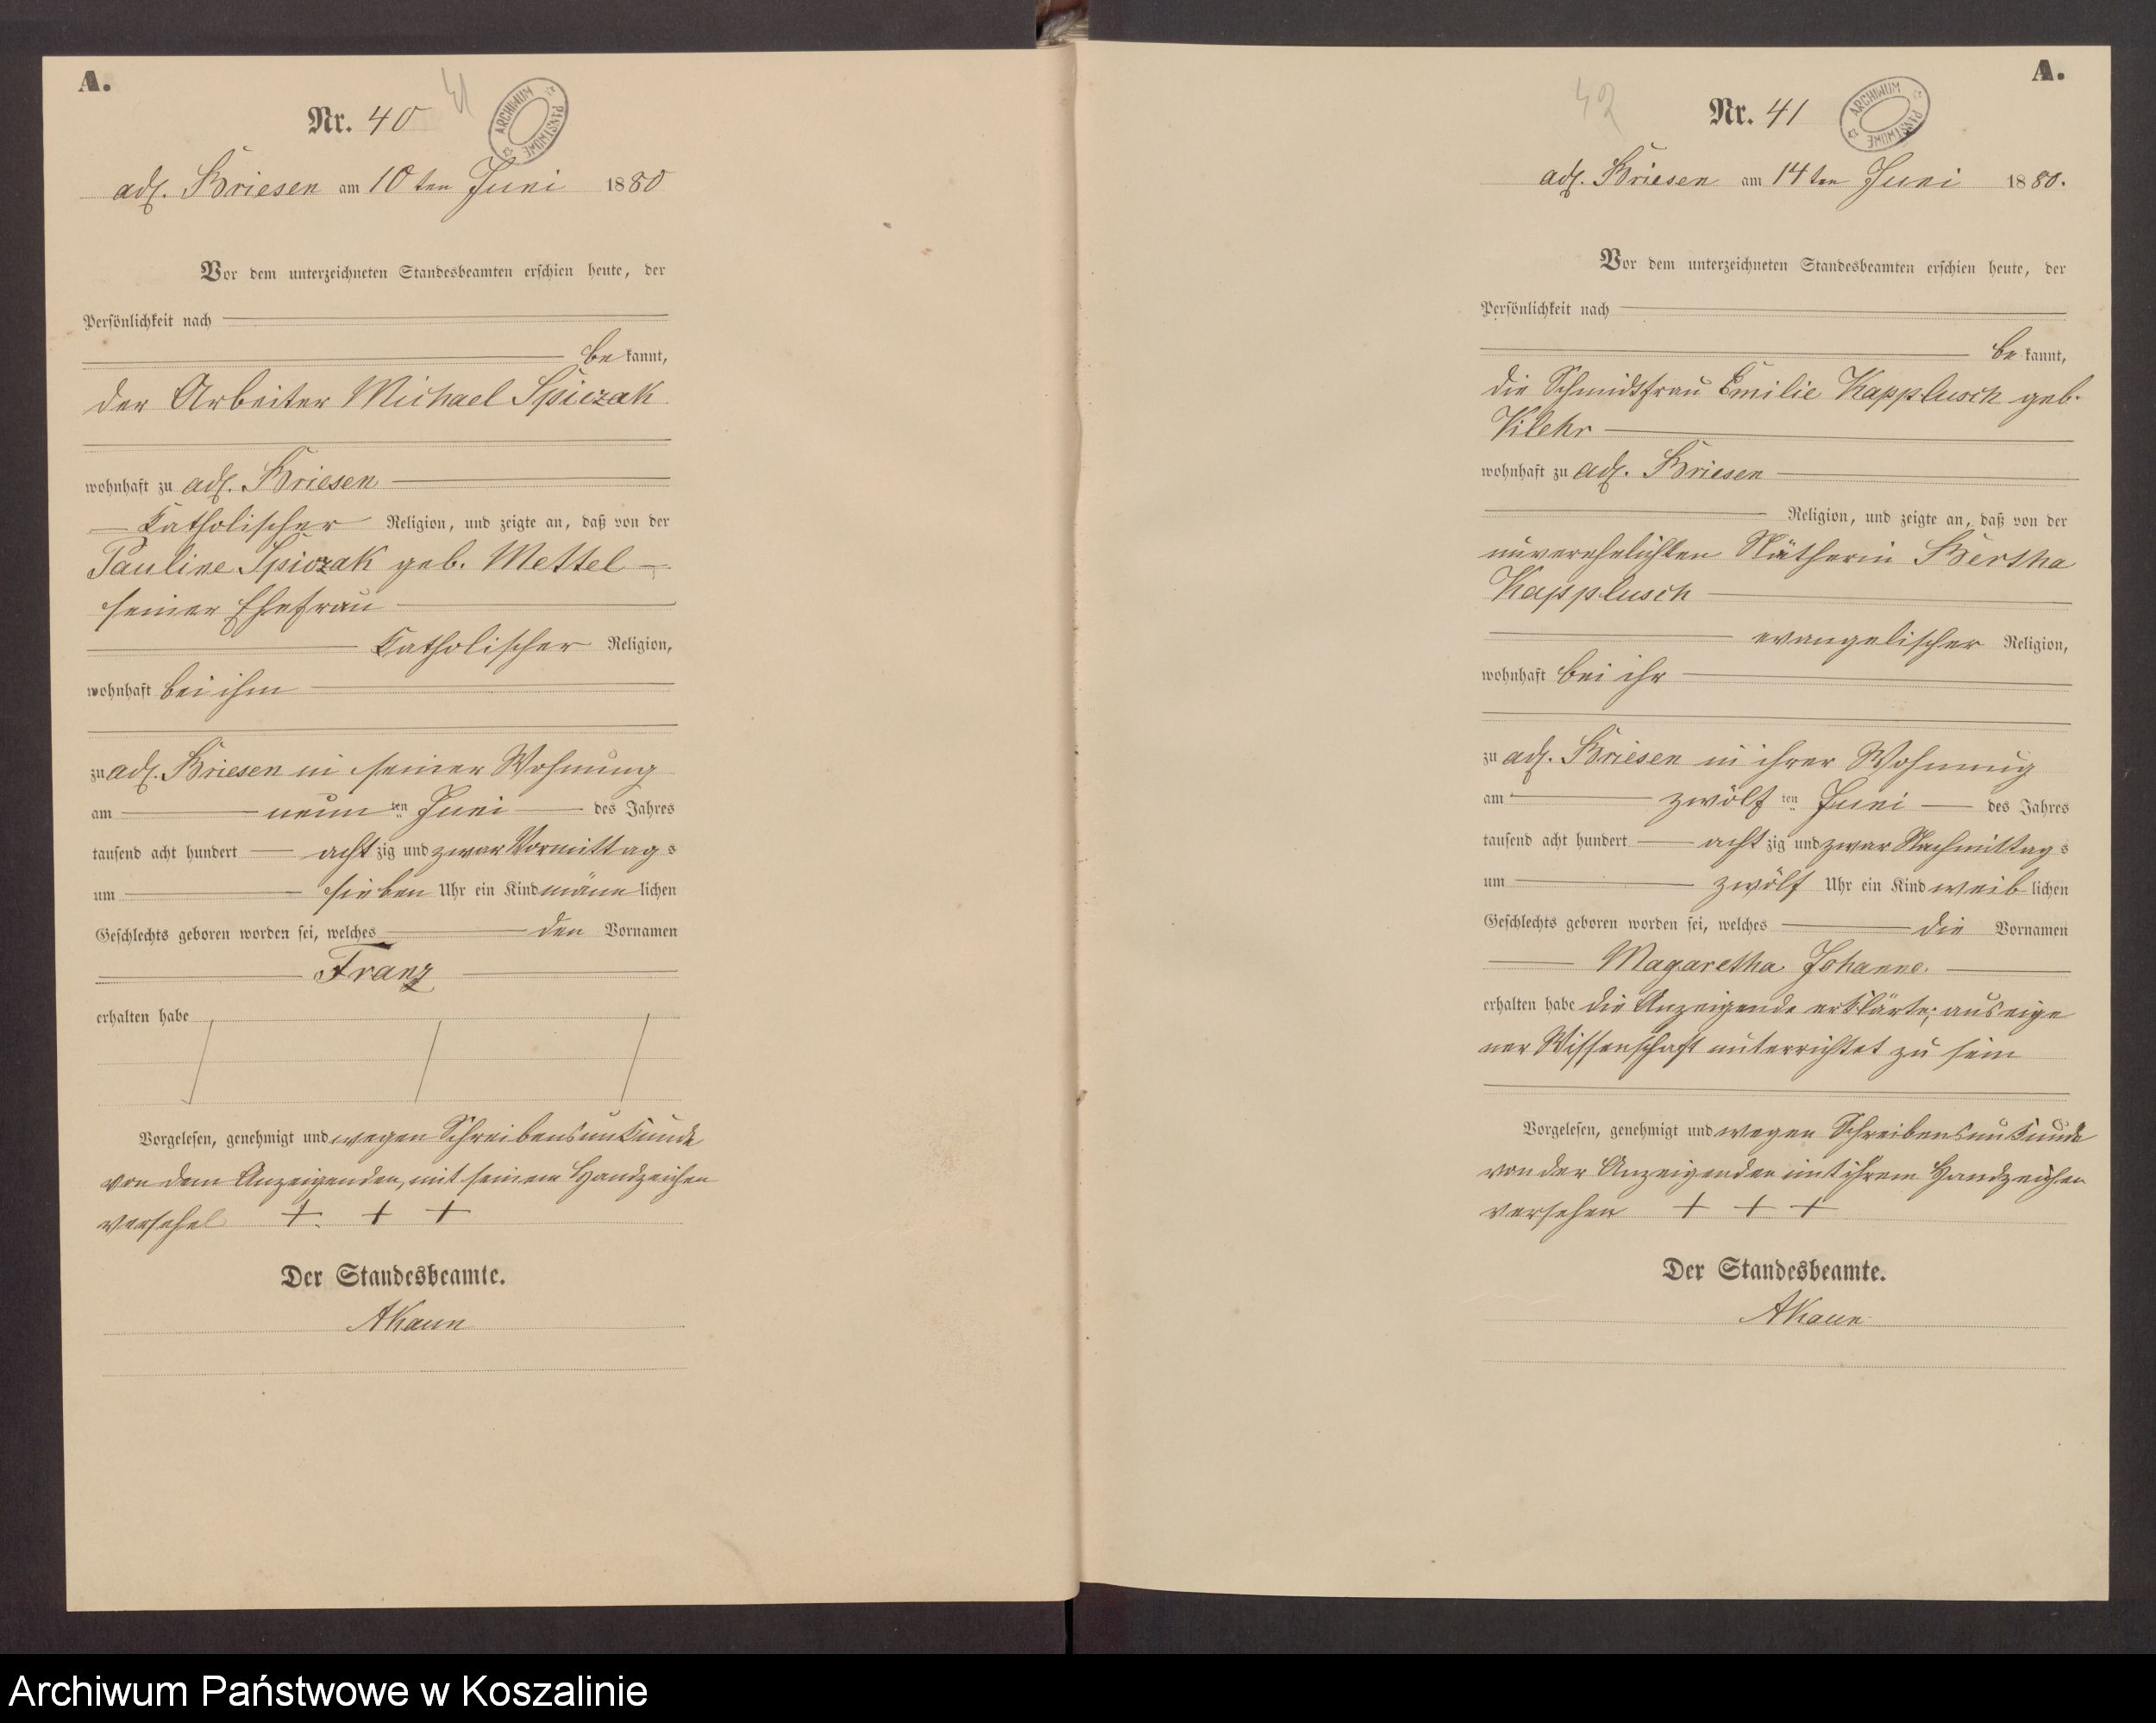 A.
Nr. 40
41
ARCHIWUM PAŃSTWOWE
adl. Briesen am 10ten Juni 1880
Vor dem unterzeichneten Standesbeamten erschien heute, der
Persönlichkeit nach
be kannt,
der Arbeiter Michael Spiczak
wohnhaft zu adl. Briesen
Katholischer Religion, und zeigte an, daß von der
Pauline Spiczak geb. Mettel
seiner Ehefrau
Katholischer Religion,
wohnhaft bei ihm
zu adl. Briesen in seiner Wohnung
am neun ten Juni des Jahres
tausend acht hundert acht zig und zwar Vormittag s
um sieben Uhr ein Kind männ lichen
Geschlechts geboren worden sei, welches den Vornamen
Franz
erhalten habe
Vorgelesen, genehmigt und wegen Schreibensunkunde
von dem Anzeigenden, mit seinem Handzeichen
versehe + + +
Der Standesbeamte.
AKaun
A.
42
Nr. 41
ARCHIWUM PAŃSTWOWE
adl. Briesen am 14ten Juni 1880.
Vor dem unterzeichneten Standesbeamten erschien heute, der
Persönlichkeit nach
be kannt,
die Schmidtfrau Emilie Kapplusch geb.
Vilehr
wohnhaft zu adl. Briesen
Religion, und zeigte an, daß von der
unverehelichten Nätherin Bertha
Kapplusch
evangelischer Religion,
wohnhaft bei ihr
zu adl. Briesen in ihrer Wohnung
am zwölf ten Juni des Jahres
tausend acht hundert acht zig und zwar Nachmittag s
um zwölf Uhr ein Kind weib lichen
Geschlechts geboren worden sei, welches die Vornamen
Magaretha Johanne.
erhalten habe die Anzeigende erklärte; aus eige
ner Wissenschaft unterrichtet zu sein
Vorgelesen, genehmigt und wegen Schreibensunkunde
von der Anzeigenden mit ihrem Handzeichen
versehen + + +
Der Standesbeamte.
AKaun
Archiwum Państwowe w Koszalinie